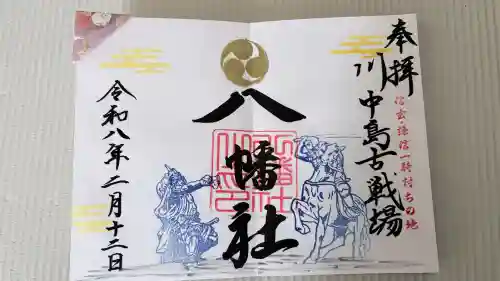 奉拝
川中島古戦場
信玄・謙信一騎討ちの地
八幡社
令和八年二月十二日